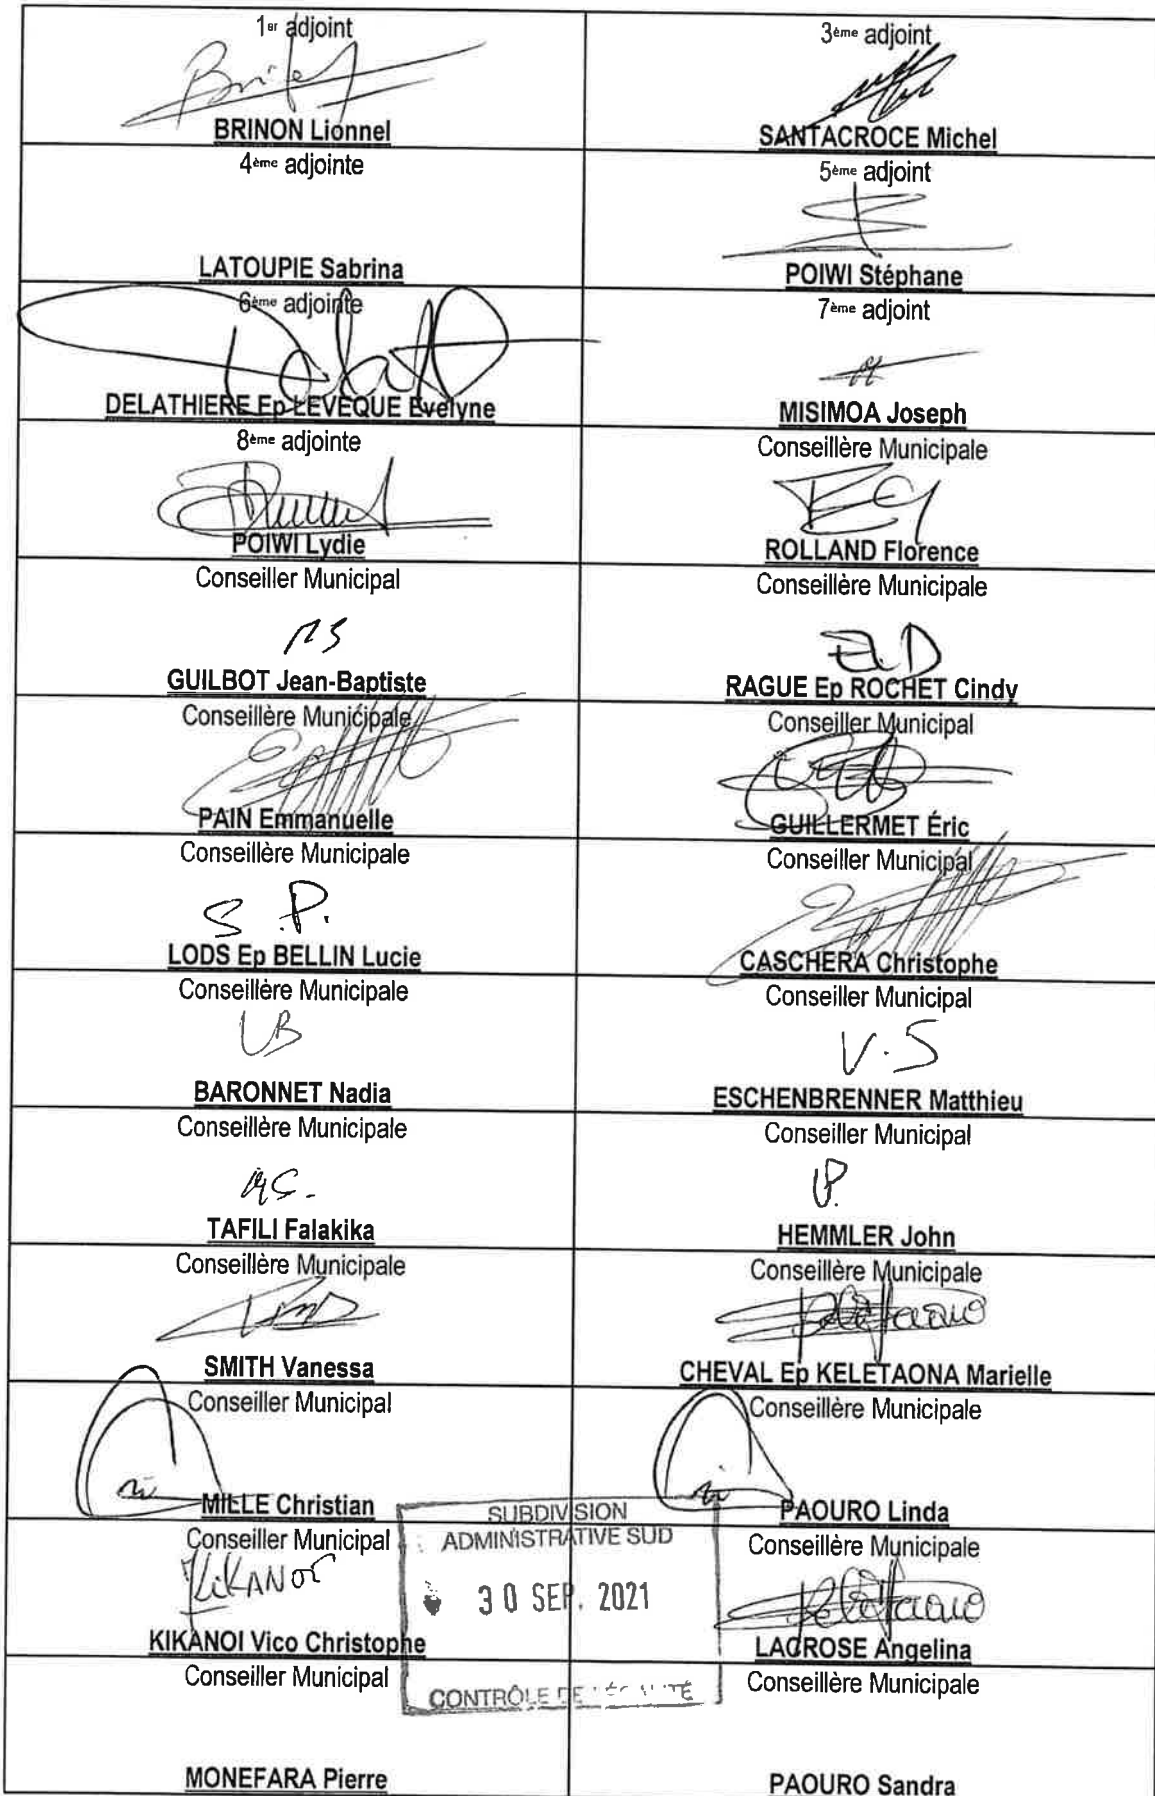 1er adjoint
BRINON Lionnel
3ème adjoint
SANTACROCE Michel
4ème adjointe
LATOUPIE Sabrina
5ème adjoint
POIWI Stéphane
6ème adjointe
DELATHIERE Ep LEVEQUE Evelyne
7ème adjoint
MISIMOA Joseph
8ème adjointe
POIWI Lydie
Conseillère Municipale
ROLLAND Florence
Conseiller Municipal
GUILBOT Jean-Baptiste
Conseillère Municipale
RAGUE Ep ROCHET Cindy
Conseillère Municipale
PAIN Emmanuelle
Conseiller Municipal
GUILLERMET Éric
Conseillère Municipale
S.P.
LODS Ep BELLIN Lucie
Conseiller Municipal
CASCHERA Christophe
Conseillère Municipale
LB
BARONNET Nadia
Conseiller Municipal
V.S
ESCHENBRENNER Matthieu
Conseillère Municipale
TAFILI Falakika
Conseiller Municipal
HEMMLER John
Conseillère Municipale
SMITH Vanessa
Conseillère Municipale
CHEVAL Ep KELETAONA Marielle
Conseiller Municipal
MILLE Christian
Conseillère Municipale
PAOURO Linda
Conseiller Municipal
KIKANOI
KIKANOI Vico Christophe
SUBDIVISION
ADMINISTRATIVE SUD
30 SEP. 2021
CONTRÔLE DE
Conseillère Municipale
LACROSE Angelina
Conseiller Municipal
MONEFARA Pierre
Conseillère Municipale
PAOURO Sandra